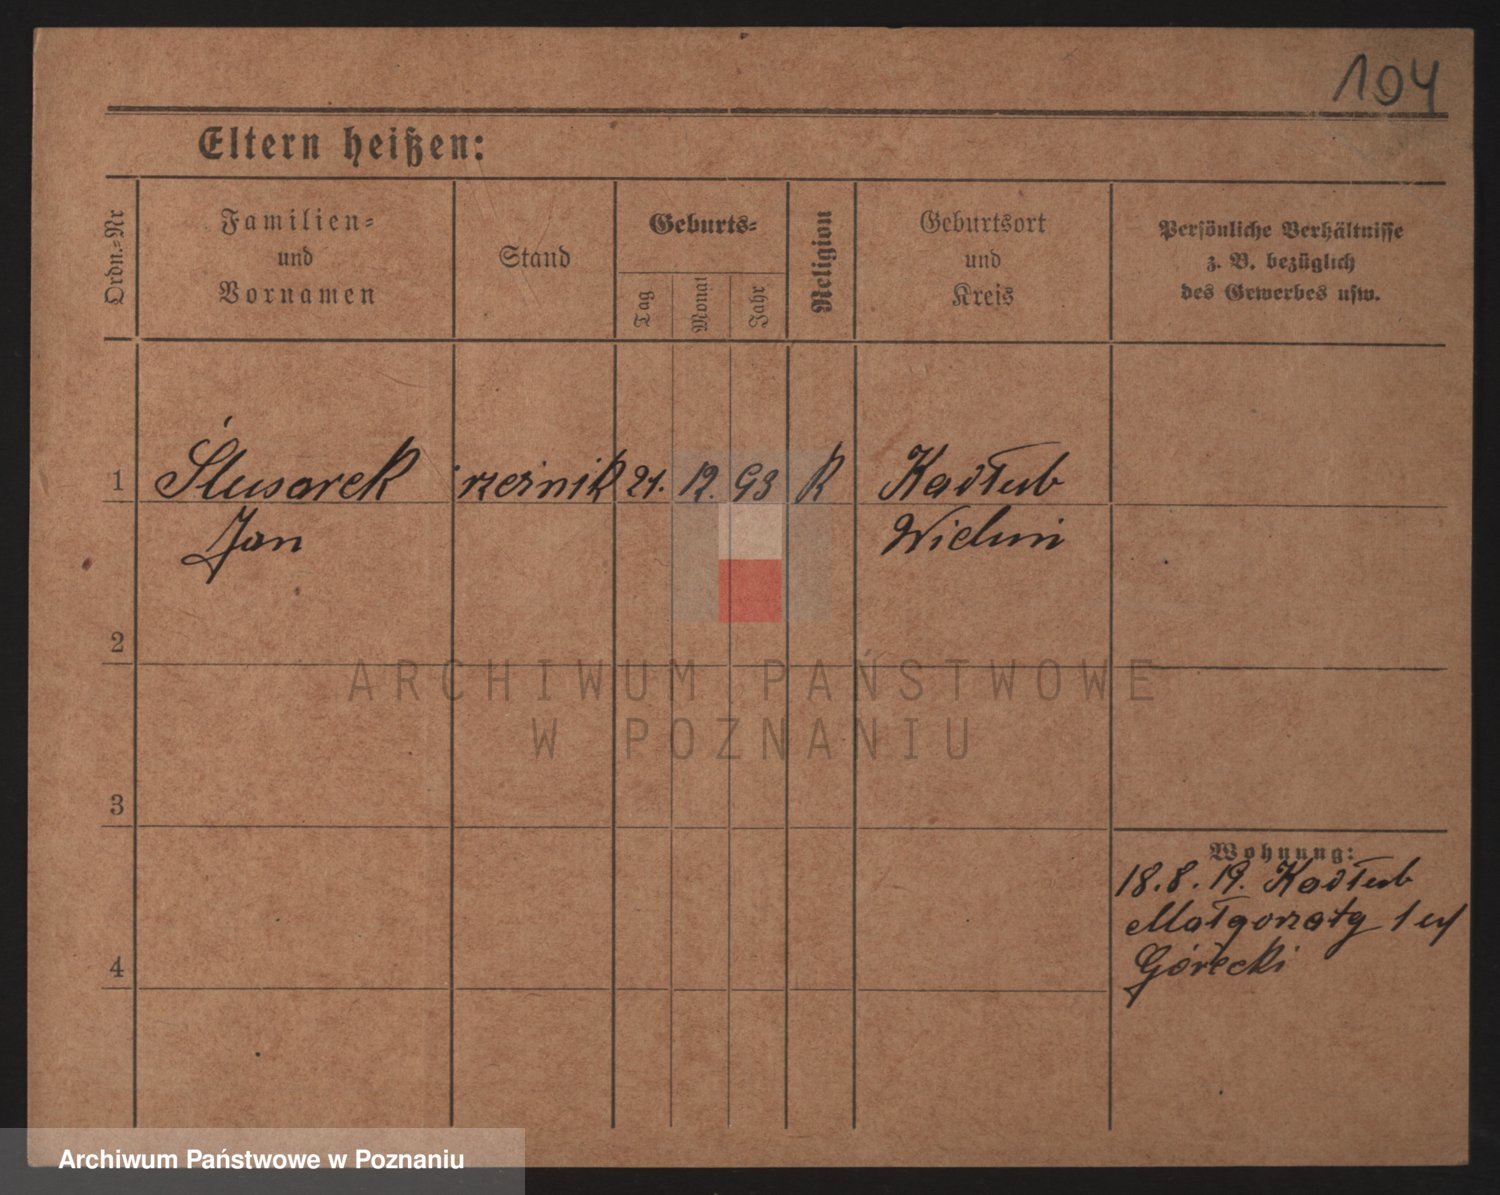 194
Eltern heißen:
Ordn.-Nr
Familien-
und
Vornamen
Stand
Geburts-
Tag
Monat
Jahr
Religion
Geburtsort
und
Kreis
Persönliche Verhältnisse
z. B. bezüglich
des Gewerbes usw.
1 Ślusarek rzeźnik 21. 12. 93 K Kadłub
Jan Wieluń
2
ARCHIWUM PAŃSTWOWE
W POZNANIU
3
Wohnung:
18. 8. 19. Kadłub
Małgorzaty 1 u/
Górecki
4
Archiwum Państwowe w Poznaniu